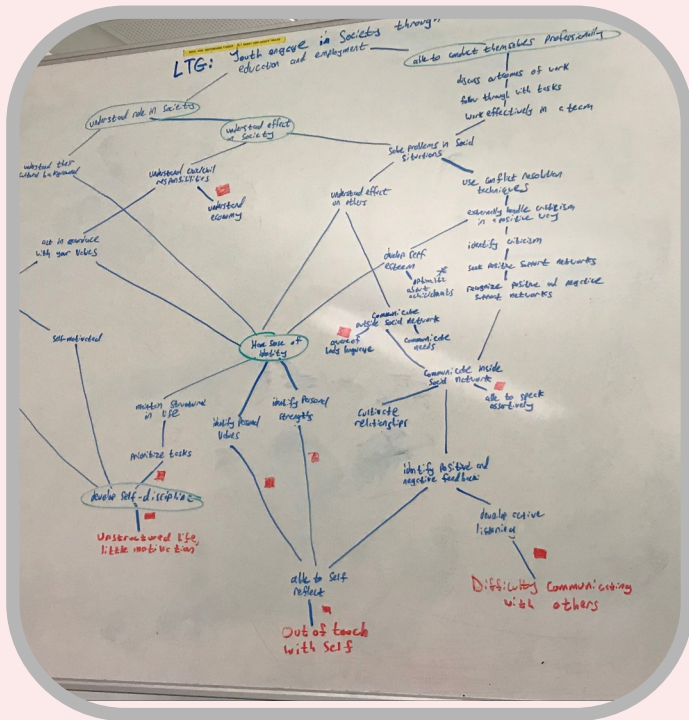 LTG: Youth engage in Society through
education and employment
able to conduct themselves professionally
discuss outcomes of work
follow through with tasks
work effectively in a team
understand role in society
understand effect
in society
solve problems in social
situations
understand their
cultural background
understand
responsibilities
understand
economy
understand effect
on others
use conflict resolution
techniques
handle criticism
in a positive way
identify criticism
seek positive support networks
recognize positive and negative
support networks
act in
with your values
develop self
esteem
optimistic
about
achievements
self-motivated
Have sense of
identity
communicate
outside social network
aware of
body language
communicate
needs
communicate inside
social network
able to speak
assertively
maintain structured
in life
identify personal
values
identify personal
strengths
cultivate
relationships
prioritize tasks
develop self-discipline
identify positive and
negative feedback
develop active
listening
Unstructured life,
little motivation
able to self
reflect
Difficulty communicating
with others
Out of touch
with self